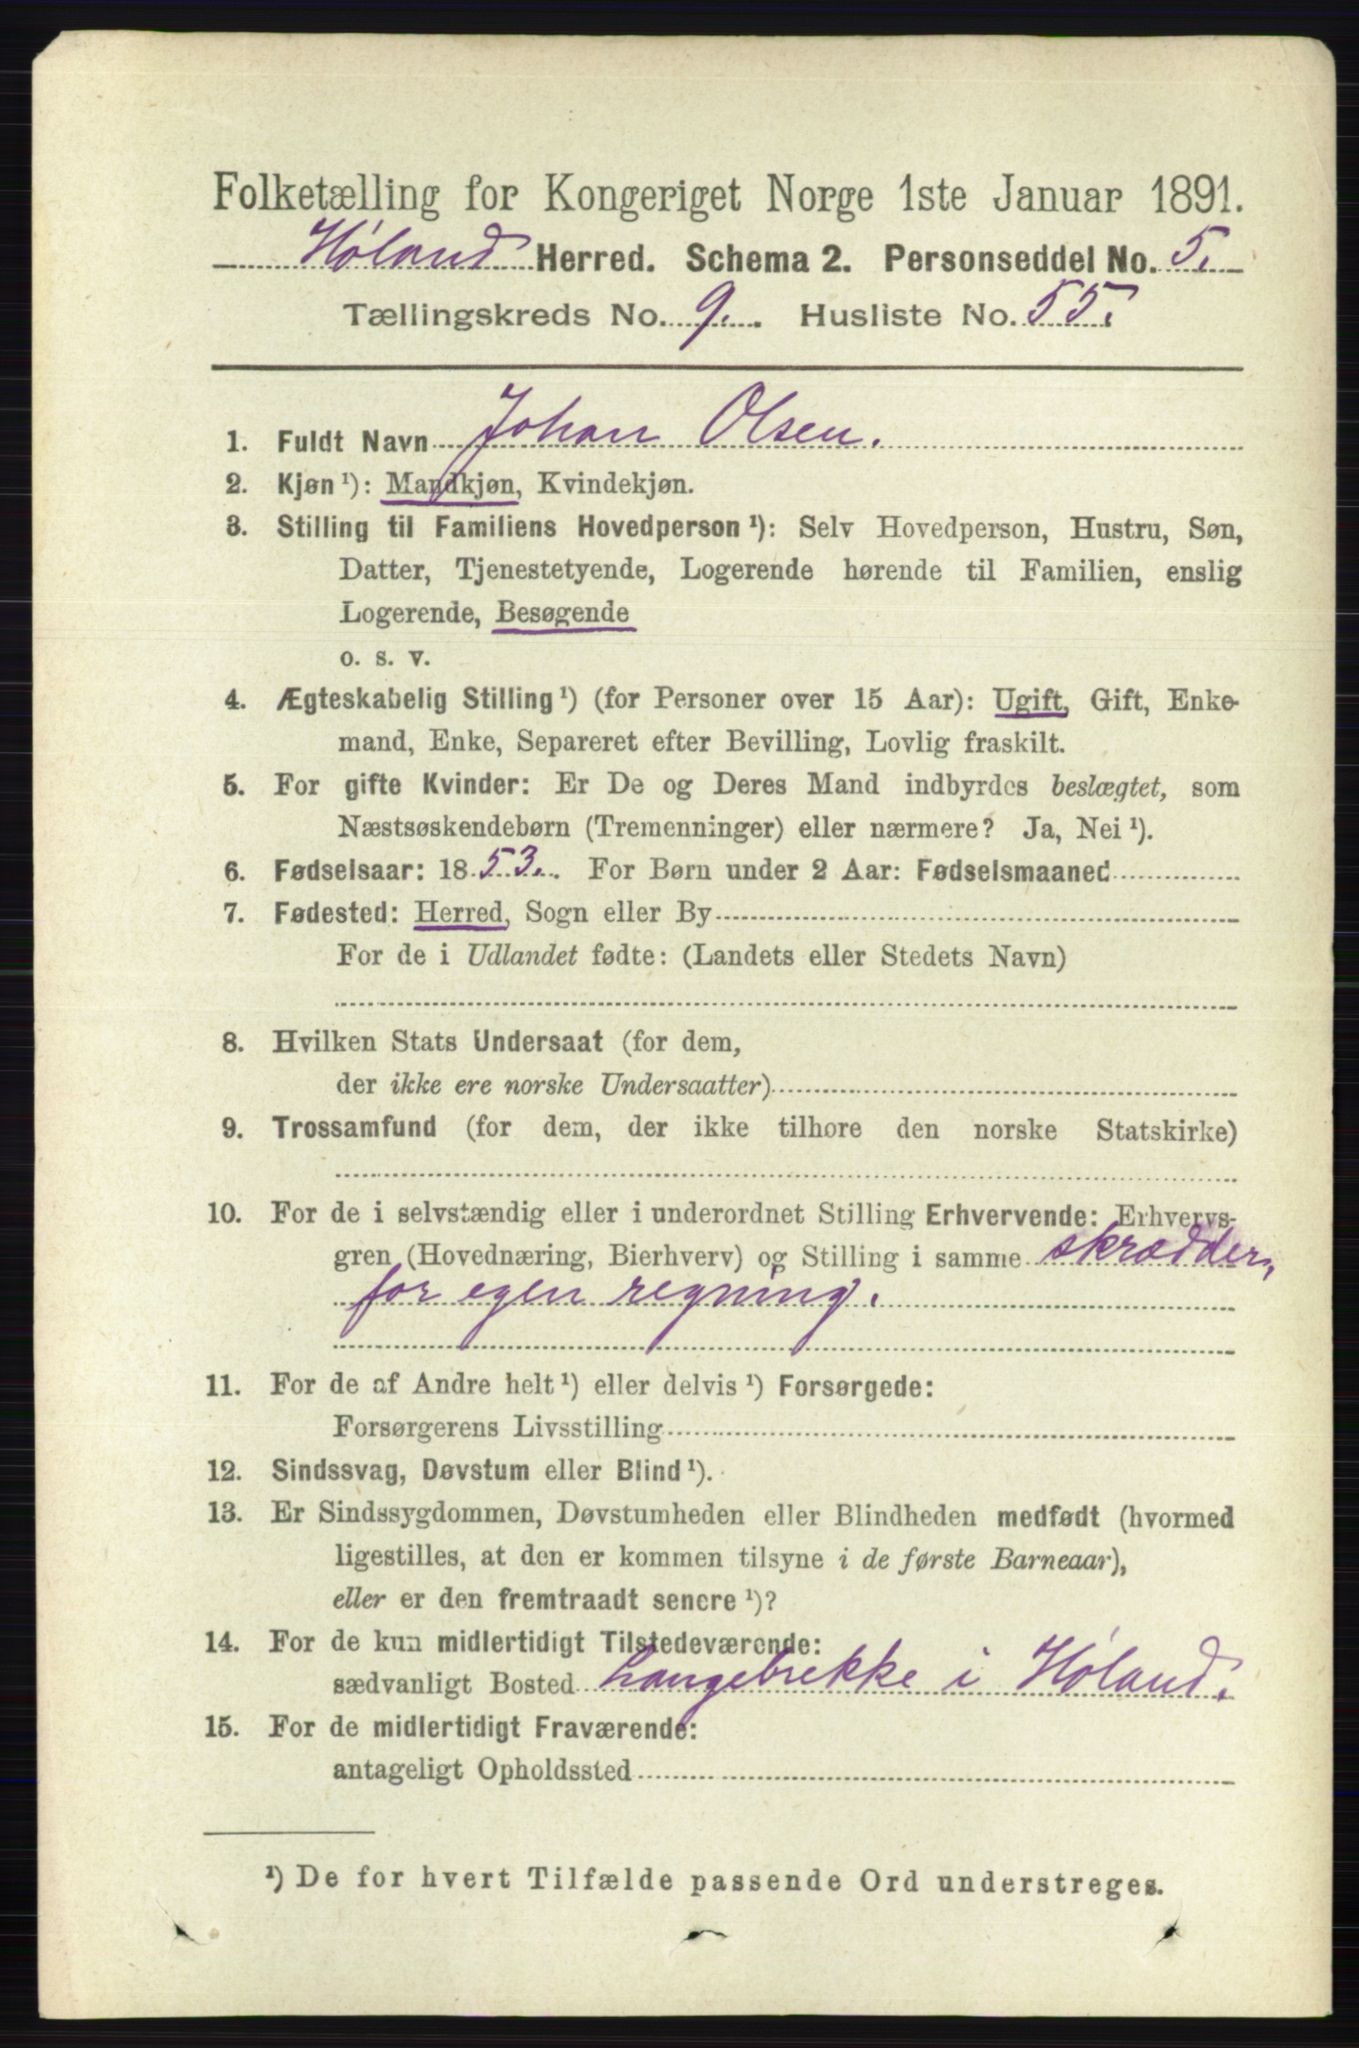 Folketælling for Kongeriget Norge 1ste Januar 1891.
Høland Herred. Schema 2. Personseddel No. 5.
Tællingskreds No. 9. Husliste No. 55.
1. Fuldt Navn Johan Olsen.
2. Kjøn ¹): Mandkjøn, Kvindekjøn.
3. Stilling til Familiens Hovedperson ¹): Selv Hovedperson, Hustru, Søn,
Datter, Tjenestetyende, Logerende hørende til Familien, enslig
Logerende, Besøgende
o. s. v.
4. Ægteskabelig Stilling ¹) (for Personer over 15 Aar): Ugift, Gift, Enke-
mand, Enke, Separeret efter Bevilling, Lovlig fraskilt.
5. For gifte Kvinder: Er De og Deres Mand indbyrdes beslægtet, som
Næstsøskendebørn (Tremenninger) eller nærmere? Ja, Nei ¹).
6. Fødselsaar: 1853. For Børn under 2 Aar: Fødselsmaaned
7. Fødested: Herred, Sogn eller By
For de i Udlandet fødte: (Landets eller Stedets Navn)
8. Hvilken Stats Undersaat (for dem,
der ikke ere norske Undersaatter)
9. Trossamfund (for dem, der ikke tilhøre den norske Statskirke)
10. For de i selvstændig eller i underordnet Stilling Erhvervende: Erhvervs-
gren (Hovednæring, Bierhverv) og Stilling i samme skrædder,
for egen regning.
11. For de af Andre helt ¹) eller delvis ¹) Forsørgede:
Forsørgerens Livsstilling
12. Sindssvag, Døvstum eller Blind ¹).
13. Er Sindssygdommen, Døvstumheden eller Blindheden medfødt (hvormed
ligestilles, at den er kommen tilsyne i de første Barneaar),
eller er den fremtraadt senere ¹)?
14. For de kun midlertidigt Tilstedeværende:
sædvanligt Bosted Langebrekke i Høland.
15. For de midlertidigt Fraværende:
antageligt Opholdssted
¹) De for hvert Tilfælde passende Ord understreges.